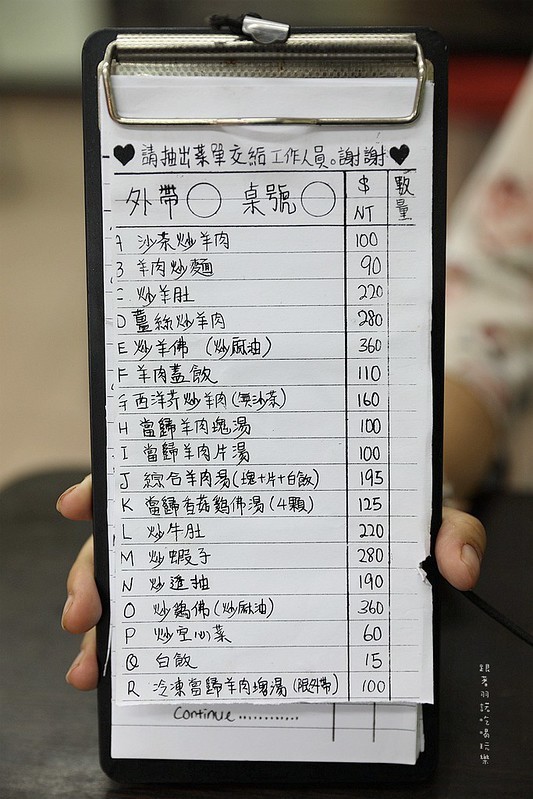 ♥請抽出菜單交給工作人員。謝謝♥
外帶○ 桌號○ $ NT 數量
A 沙茶炒羊肉 100
B 羊肉炒麵 90
C 炒羊肚 220
D 薑絲炒羊肉 280
E 炒羊佛 (炒麻油) 360
F 羊肉蓋飯 110
G 西洋芹炒羊肉(無沙茶) 160
H 當歸羊肉塊湯 100
I 當歸羊肉片湯 100
J 綜合羊肉湯(塊+片+白飯) 195
K 當歸香菇鷄佛湯(4顆) 125
L 炒牛肚 220
M 炒蝦子 280
N 炒透抽 190
O 炒鷄佛(炒麻油) 360
P 炒空心菜 60
Q 白飯 15
R 冷凍當歸羊肉塊湯(限外帶) 100
Continue............
跟著羽諾吃喝玩樂